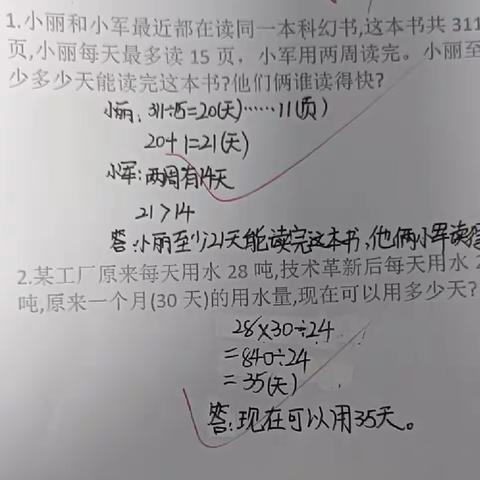 1.小丽和小军最近都在读同一本科幻书,这本书共 311
页,小丽每天最多读 15 页，小军用两周读完。小丽至
少多少天能读完这本书?他们俩谁读得快?
小丽：311÷15=20(天)……11(页)
20+1=21(天)
小军:两周有14天
21>14
答:小丽至少21天能读完这本书,他俩小军读得
2.某工厂原来每天用水 28 吨,技术革新后每天用水 2
吨,原来一个月(30 天)的用水量,现在可以用多少天?
28×30÷24
=840÷24
=35(天)
答:现在可以用35天。